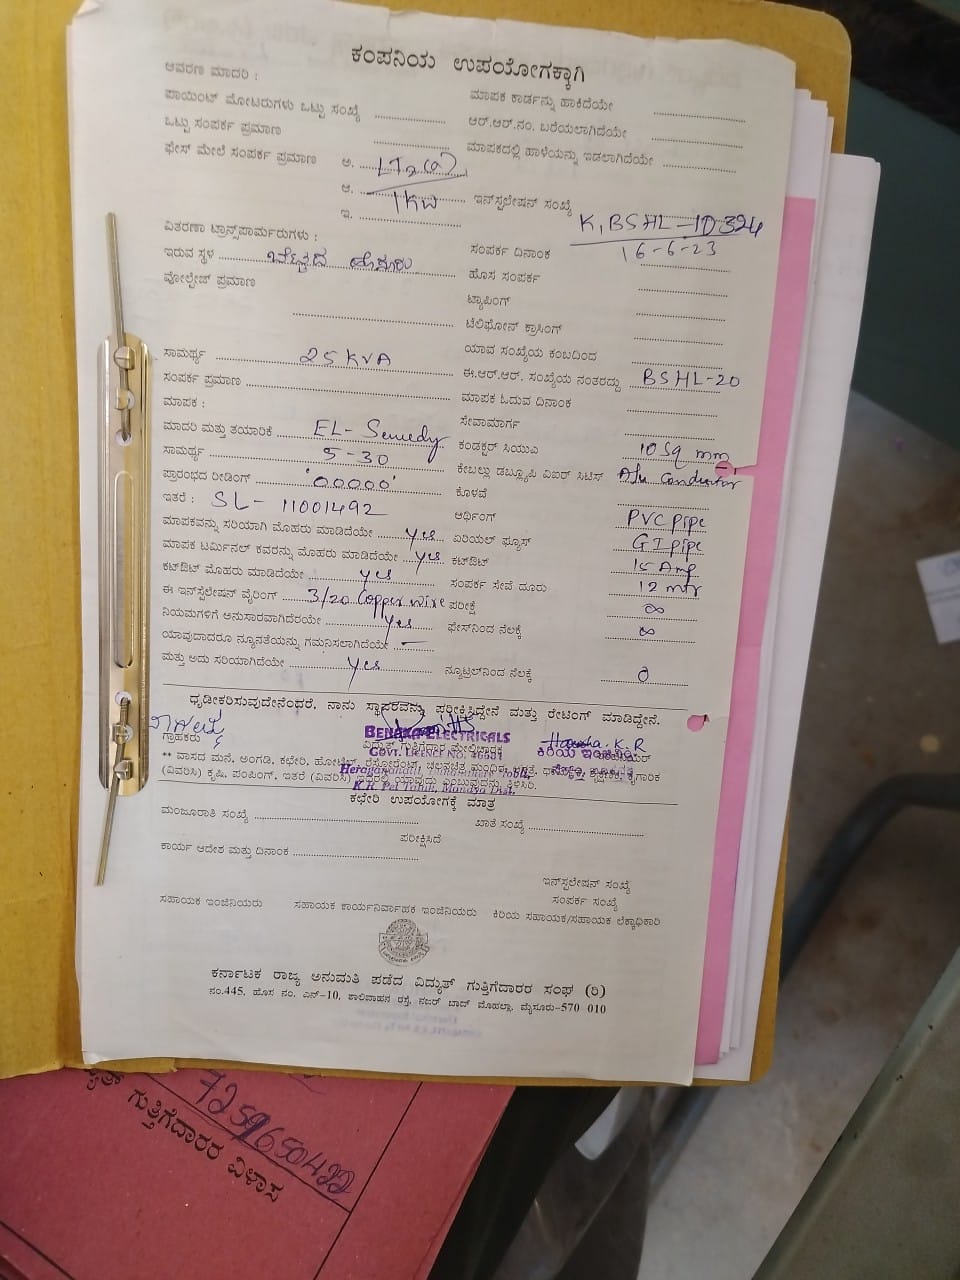 ಕಂಪನಿಯ ಉಪಯೋಗಕ್ಕಾಗಿ
ಆವರಣ ಮಾದರಿ :
ಮಾಪಕ ಕಾರ್ಡನ್ನು ಹಾಕಿದೆಯೇ
ಪಾಯಿಂಟ್ ಮೋಟರುಗಳು ಒಟ್ಟು ಸಂಖ್ಯೆ
ಆರ್.ಆರ್.ನಂ. ಬರೆಯಲಾಗಿದೆಯೇ
ಒಟ್ಟು ಸಂಪರ್ಕ ಪ್ರಮಾಣ
ಮಾಪಕದಲ್ಲಿ ಹಾಳೆಯನ್ನು ಇಡಲಾಗಿದೆಯೇ
ಫೇಸ್ ಮೇಲೆ ಸಂಪರ್ಕ ಪ್ರಮಾಣ ಅ. LT2(a)
ಆ. 1 KW ಇನ್‌ಸ್ಟಲೇಷನ್ ಸಂಖ್ಯೆ K, BSHL-10324
ಇ.
ವಿತರಣಾ ಟ್ರಾನ್ಸ್‌ಫಾರ್ಮರುಗಳು :
ಸಂಪರ್ಕ ದಿನಾಂಕ 16-6-23
ಇರುವ ಸ್ಥಳ
ಹೊಸ ಸಂಪರ್ಕ
ವೋಲ್ಟೇಜ್ ಪ್ರಮಾಣ
ಟ್ಯಾಪಿಂಗ್
ಟೆಲಿಫೋನ್ ಕ್ರಾಸಿಂಗ್
ಸಾಮರ್ಥ್ಯ 25 KVA ಯಾವ ಸಂಖ್ಯೆಯ ಕಂಬದಿಂದ
ಸಂಪರ್ಕ ಪ್ರಮಾಣ ಈ.ಆರ್.ಆರ್. ಸಂಖ್ಯೆಯ ನಂತರದ್ದು BSHL-20
ಮಾಪಕ : ಮಾಪಕ ಓದುವ ದಿನಾಂಕ
ಸೇವಾಮಾರ್ಗ
ಮಾದರಿ ಮತ್ತು ತಯಾರಿಕೆ EL- ಕಂಡಕ್ಟರ್ ಸಿಯುಎ 10 Sq mm
ಸಾಮರ್ಥ್ಯ 5-30 ಕೇಬಲ್ಲು ಡಬ್ಲ್ಯೂಪಿ ವಿಐಆರ್ ಸಿಟಿಎಸ್ Alu Conductor
ಪ್ರಾರಂಭದ ರೀಡಿಂಗ್ '00000' ಕೊಳವೆ
ಇತರೆ : SL- 11001492 ಆರ್ಥಿಂಗ್ PVC Pipe
ಮಾಪಕವನ್ನು ಸರಿಯಾಗಿ ಮೊಹರು ಮಾಡಿದೆಯೇ yes ಏರಿಯಲ್ ಫ್ಯೂಸ್ GI Pipe
ಮಾಪಕ ಟರ್ಮಿನಲ್ ಕವರನ್ನು ಮೊಹರು ಮಾಡಿದೆಯೇ yes ಕಟ್‌ಔಟ್ 15 Amp
ಕಟ್‌ಔಟ್ ಮೊಹರು ಮಾಡಿದೆಯೇ yes ಸಂಪರ್ಕ ಸೇವೆ ದೂರು 12 mtr
ಈ ಇನ್‌ಸ್ಟಲೇಷನ್ ವೈರಿಂಗ್ 3/20 Copper wire ಪರೀಕ್ಷೆ ∞
ನಿಯಮಗಳಿಗೆ ಅನುಸಾರವಾಗಿದೆರಯೇ yes ಫೇಸ್‌ನಿಂದ ನೆಲಕ್ಕೆ ∞
ಯಾವುದಾದರೂ ನ್ಯೂನತೆಯನ್ನು ಗಮನಿಸಲಾಗಿದೆಯೇ —
ಮತ್ತು ಅದು ಸರಿಯಾಗಿದೆಯೇ yes ನ್ಯೂಟ್ರಲ್‌ನಿಂದ ನೆಲಕ್ಕೆ 0
ಧೃಡೀಕರಿಸುವುದೇನೆಂಥರೆ. ನಾನು ಸ್ಥಾವರವನ್ನು ಪರೀಕ್ಷಿಸಿದ್ದೇನೆ ಮತ್ತು ರೇಟಿಂಗ್ ಮಾಡಿದ್ದೇನೆ.
BENAKA ELECTRICALS
Harsha K.R
ಗ್ರಾಹಕರು ವಿದ್ಯುತ್ ಗುತ್ತಿಗೆದಾರ ಮೇಲ್ವಿಚಾರಕ ಕಿರಿಯ ಇಂಜಿನಿಯರ್
GOVT. LICENCE NO.
** ವಾಸದ ಮನೆ, ಅಂಗಡಿ, ಕಛೇರಿ, ಹೋಟೆಲ್, ರೆಸ್ಟೋರೆಂಟ್, ಚಲನಚಿತ್ರ ಮಂದಿರ,
(ವಿವರಿಸಿ) ಕೃಷಿ, ಪಂಪಿಂಗ್, ಇತರೆ (ವಿವರಿಸಿ) ಇದರಲ್ಲಿ ಯಾವುದು ಎಂಬುವುದನ್ನು ತಿಳಿಸಿರಿ.
K.R. Pet Taluk, Mandya Dist.
ಕಛೇರಿ ಉಪಯೋಗಕ್ಕೆ ಮಾತ್ರ
ಮಂಜೂರಾತಿ ಸಂಖ್ಯೆ ಖಾತೆ ಸಂಖ್ಯೆ
ಪರೀಕ್ಷಿಸಿದೆ
ಕಾರ್ಯ ಆದೇಶ ಮತ್ತು ದಿನಾಂಕ
ಇನ್‌ಸ್ಟಲೇಷನ್ ಸಂಖ್ಯೆ
ಸಂಪರ್ಕ ಸಂಖ್ಯೆ
ಸಹಾಯಕ ಇಂಜಿನಿಯರು ಸಹಾಯಕ ಕಾರ್ಯನಿರ್ವಾಹಕ ಇಂಜಿನಿಯರು ಕಿರಿಯ ಸಹಾಯಕ/ಸಹಾಯಕ ಲೆಕ್ಕಾಧಿಕಾರಿ
ಕರ್ನಾಟಕ ರಾಜ್ಯ ಅನುಮತಿ ಪಡೆದ ವಿದ್ಯುತ್ ಗುತ್ತಿಗೆದಾರರ ಸಂಘ (ರಿ)
ನಂ.445, ಹೊಸ ನಂ. ಎನ್-10, ಶಾಲಿವಾಹನ ರಸ್ತೆ, ನಜರ್ ಬಾದ್ ಮೊಹಲ್ಲಾ, ಮೈಸೂರು-570 010
7259650422
ಗುತ್ತಿಗೆದಾರರ ವಿಳಾಸ